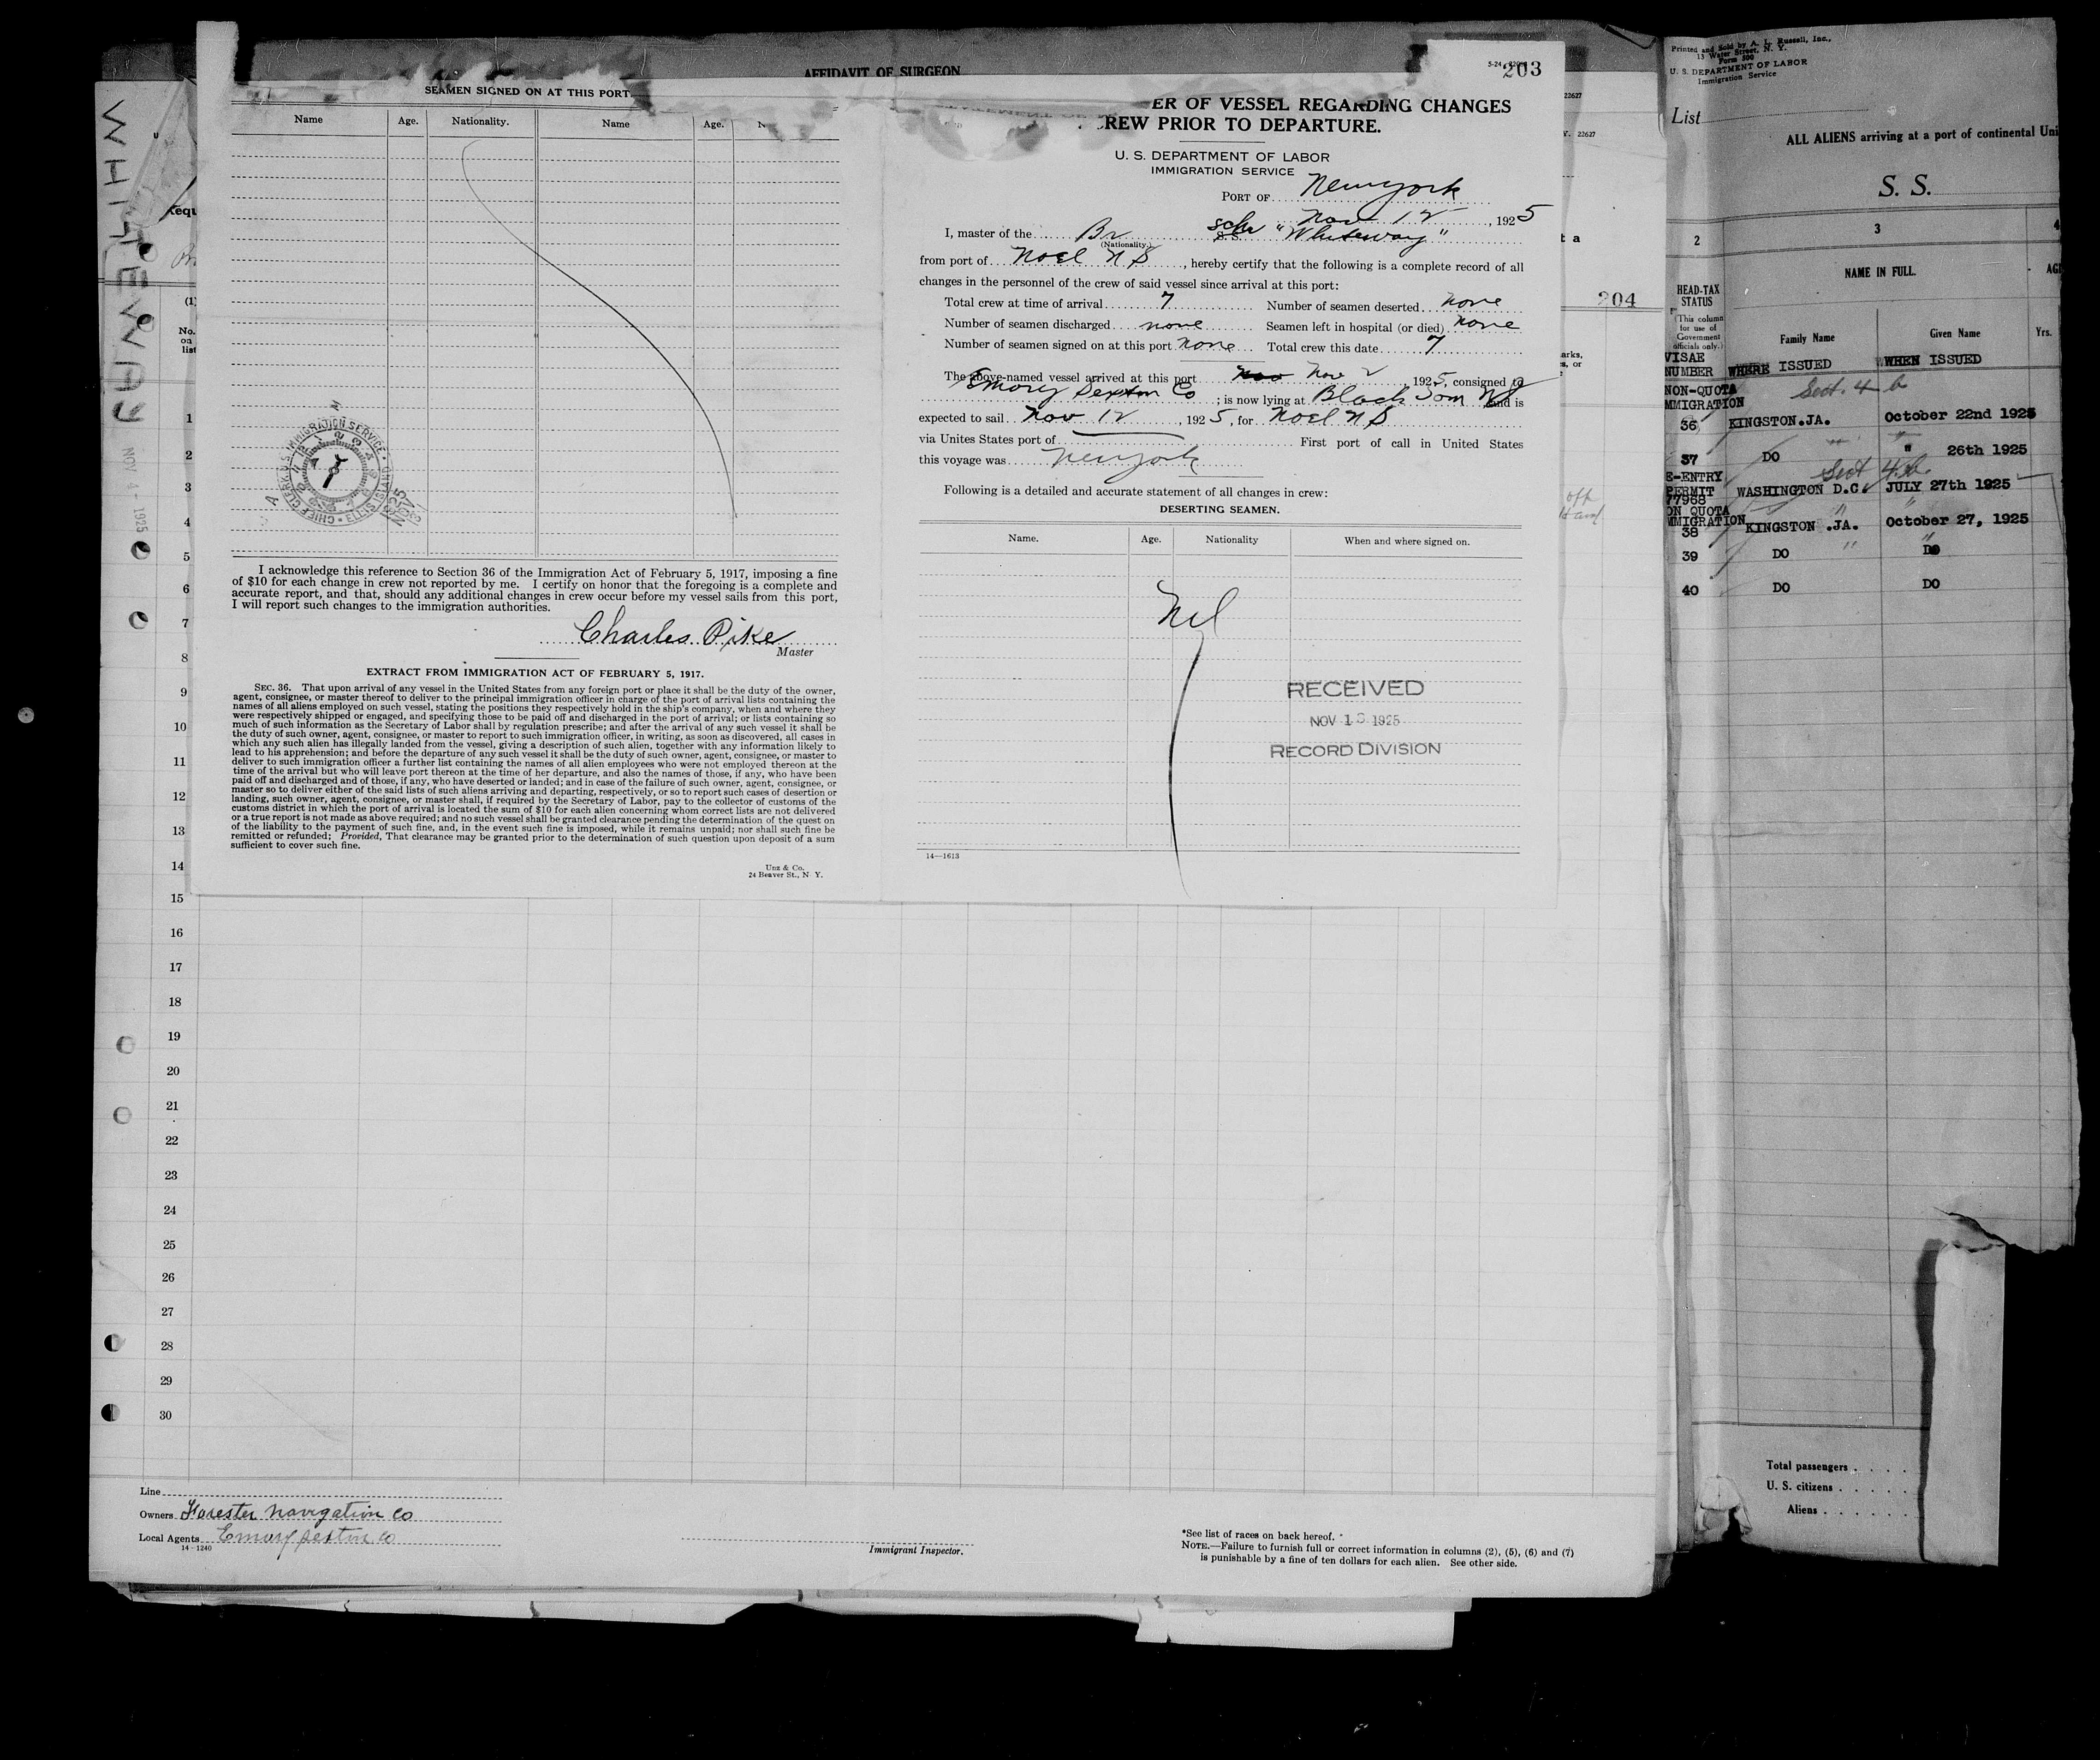 AFFIDAVIT OF SURGEON
SEAMEN SIGNED ON AT THIS PORT
Name Age. Nationality. Name Age. N
I acknowledge this reference to Section 36 of the Immigration Act of February 5, 1917, imposing a fine
of $10 for each change in crew not reported by me. I certify on honor that the foregoing is a complete and
accurate report, and that, should any additional changes in crew occur before my vessel sails from this port,
I will report such changes to the immigration authorities.
Charles Pike
Master
EXTRACT FROM IMMIGRATION ACT OF FEBRUARY 5, 1917.
SEC. 36. That upon arrival of any vessel in the United States from any foreign port or place it shall be the duty of the owner,
agent, consignee, or master thereof to deliver to the principal immigration officer in charge of the port of arrival lists containing the
names of all aliens employed on such vessel, stating the positions they respectively hold in the ship's company, when and where they
were respectively shipped or engaged, and specifying those to be paid off and discharged in the port of arrival; or lists containing so
much of such information as the Secretary of Labor shall by regulation prescribe; and after the arrival of any such vessel it shall be
the duty of such owner, agent, consignee, or master to report to such immigration officer, in writing, as soon as discovered, all cases in
which any such alien has illegally landed from the vessel, giving a description of such alien, together with any information likely to
lead to his apprehension; and before the departure of any such vessel it shall be the duty of such owner, agent, consignee, or master to
deliver to such immigration officer a further list containing the names of all alien employees who were not employed thereon at the
time of the arrival but who will leave port thereon at the time of her departure, and also the names of those, if any, who have been
paid off and discharged and of those, if any, who have deserted or landed; and in case of the failure of such owner, agent, consignee, or
master so to deliver either of the said lists of such aliens arriving and departing, respectively, or so to report such cases of desertion or
landing, such owner, agent, consignee, or master shall, if required by the Secretary of Labor, pay to the collector of customs of the
customs district in which the port of arrival is located the sum of $10 for each alien concerning whom correct lists are not delivered
or a true report is not made as above required; and no such vessel shall be granted clearance pending the determination of the quest on
of the liability to the payment of such fine, and, in the event such fine is imposed, while it remains unpaid; nor shall such fine be
remitted or refunded; Provided, That clearance may be granted prior to the determination of such question upon deposit of a sum
sufficient to cover such fine.
UNZ & Co.
24 Beaver St., N Y.
5-24
203
ER OF VESSEL REGARDING CHANGES
REW PRIOR TO DEPARTURE.
U. S. DEPARTMENT OF LABOR
IMMIGRATION SERVICE
PORT OF New York
Nov 12, 1925
I, master of the Br schr S.S. "Whiteway"
(Nationality)
from port of Noel N S, hereby certify that the following is a complete record of all
changes in the personnel of the crew of said vessel since arrival at this port:
Total crew at time of arrival 7 Number of seamen deserted none
Number of seamen discharged none Seamen left in hospital (or died) none
Number of seamen signed on at this port none Total crew this date 7
The above-named vessel arrived at this port Nov Nov 2 1925, consigned to
Emory Sexton Co; is now lying at Black Tom NJ and is
expected to sail Nov 12, 1925, for Noel N S
via Unites States port of First port of call in United States
this voyage was New York
Following is a detailed and accurate statement of all changes in crew:
DESERTING SEAMEN.
Name. Age. Nationality When and where signed on.
Nil
RECEIVED
NOV 13 1925
RECORD DIVISION
14—1613
WHITEWAY
NOV 4 - 1925
CHIEF CLERK, U.S. IMMIGRATION SERVICE ELLIS ISLAND
22627
22627
204
(1)
No.
on
list
1
2
3
4
5
6
7
8
9
10
11
12
13
14
15
16
17
18
19
20
21
22
23
24
25
26
27
28
29
30
Line
Owners Forester Navigation Co
Local Agents Emory Sexton Co
14-1240
Immigrant Inspector.
*See list of races on back hereof.
NOTE.—Failure to furnish full or correct information in columns (2), (5), (6) and (7)
is punishable by a fine of ten dollars for each alien. See other side.
Printed and Sold by A. L. Russell, Inc.,
13 Water Street, N. Y.
Form 500
U. S. DEPARTMENT OF LABOR
Immigration Service
List
ALL ALIENS arriving at a port of continental Uni
S. S.
2 3 4
HEAD-TAX
STATUS
(This column
for use of
Government
officials only.)
NAME IN FULL. AGE
Family Name Given Name Yrs.
VISAE
NUMBER WHERE ISSUED WHEN ISSUED
NON-QUOTA Sect. 4 b
MMIGRATION
36 KINGSTON.JA. October 22nd 1925
37 DO " 26th 1925
E-ENTRY Sect 4 b
PERMIT WASHINGTON D.C. JULY 27th 1925
77968
ON QUOTA
MMIGRATION KINGSTON .JA. October 27, 1925
38
39 DO DO
40 DO DO
Total passengers
U. S. citizens
Aliens